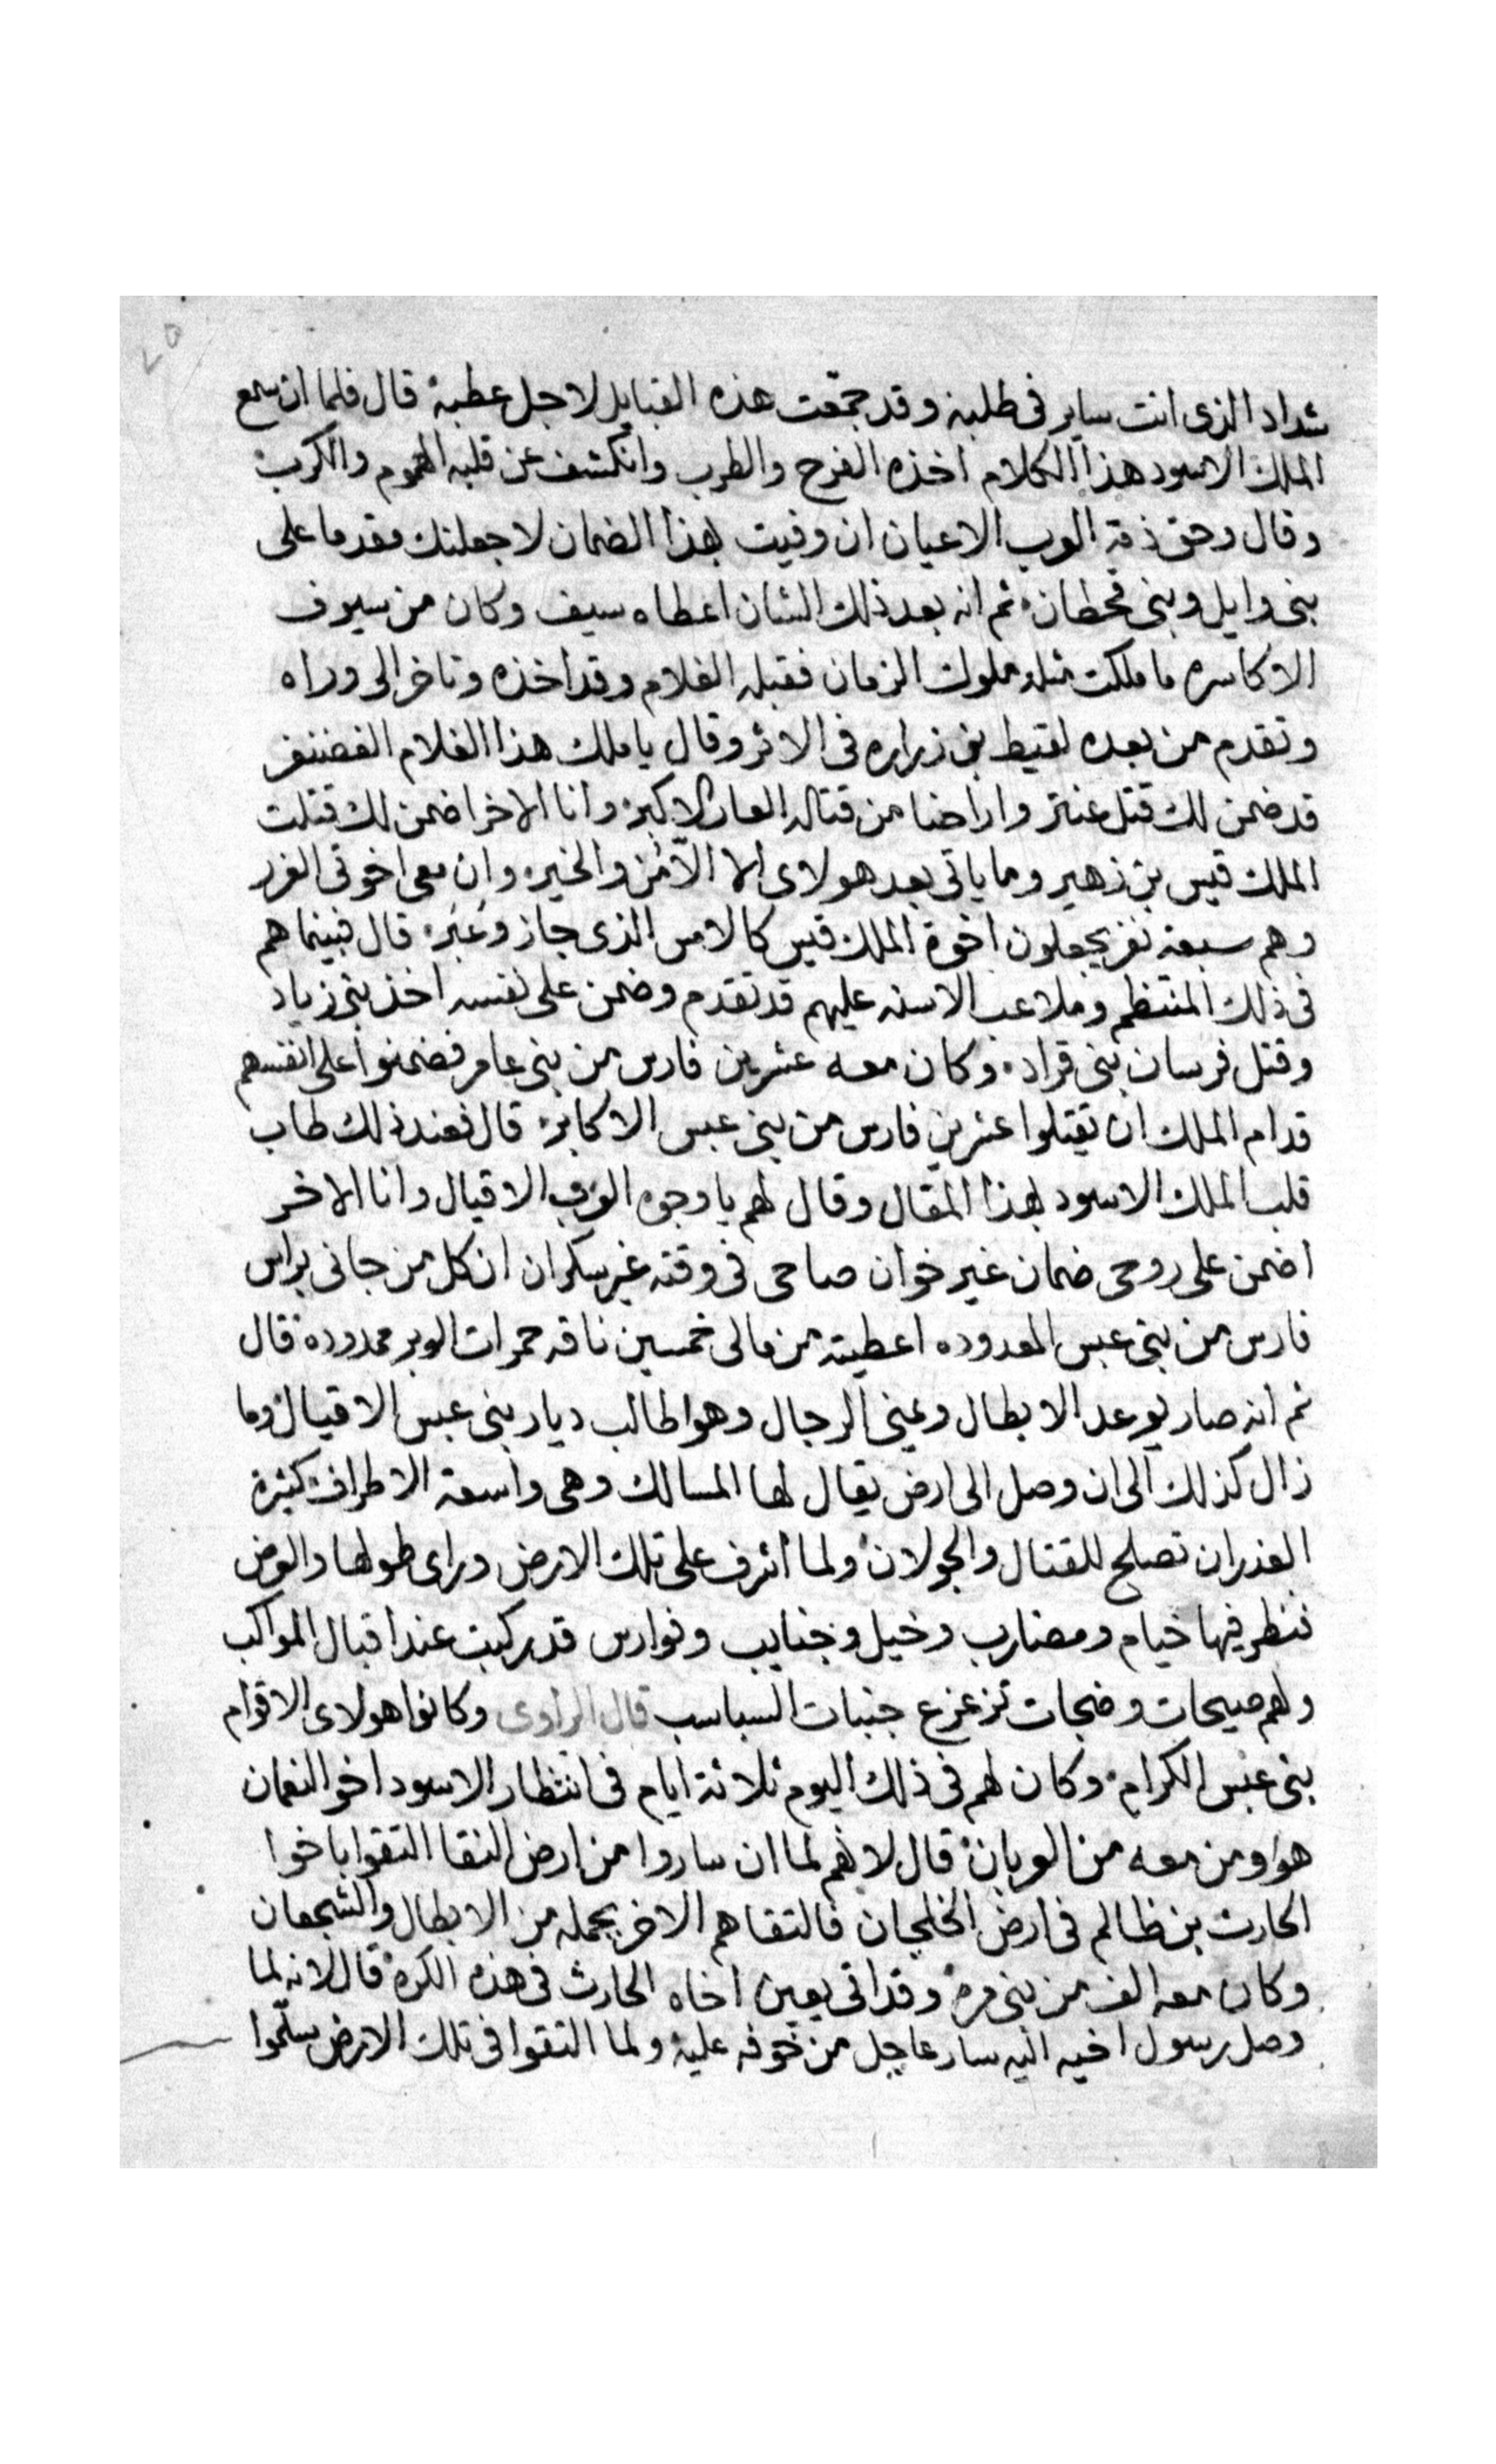 شداد الذى انت ساير فى طلبه وقد جمعت هذه القبايل لاجل عطبه قال فلما ان سمع
الملك الاسود هذا الكلام اخذه الفرح والطرب وانكشف عن قلبه الهموم والكرب
وقال وحق ذمة العرب الاعيان ان وفيت بهذا الضمان لاجعلنك مقدما على
بنى وايل وبنى قحطان ثم انه بعد ذلك الشان اعطاه سيف وكان من سيوف
الاكاسره ما ملكت مثله ملوك الزمان فقبله الغلام وقد اخذه وتاخر الى وراه
وتقدم من بعده لقيط بن زراره فى الاثر وقال يا ملك هذا الغلام الغضنفر
قد ضمن لك قتل عنتر واراحنا من قتاله العار الاكبر وانا الاخر اضمن لك قتلت
الملك قيس بن زهير وما ياتى بعد هولاى الا الأمن والخير وان معى اخوتى الغرر
وهم سبعة نفر يجعلون اخوة الملك قيس كالامس الذى جاز وغبر قال فبينما هم
فى ذلك المنتظم وملاعب الاسنه عليهم قد تقدم وضمن على نفسه اخذ بنى زياد
وقتل فرسان بنى قراد وكان معه عشرين فارس من بنى عامر فضمنوا على انفسهم
قدام الملك ان يقتلوا عشرين فارس من بنى عبس الاكابر قال فعند ذلك طاب
قلب الملك الاسود بهذا المقال وقال لهم يا وجوه العرب الاقيال وانا الاخر
اضمن على روحى ضمان غير خوان صاحى فى وقته غير سكران ان كل من جانى براس
فارس من بنى عبس المعدوده اعطيته من مالى خمسين ناقه حمرات الوبر ممدوده قال
ثم انه صار يوعد الابطال ويمنى الرجال وهوا طالب ديار بنى عبس الاقيال وما
زال كذلك الى ان وصل الى ارض يقال لها المسالك وهى واسعة الاطراف كثيرة
الغدران تصلح للقتال والجولان ولما اشرف على تلك الارض وراى طولها والعرض
فنظر فيها خيام ومضارب وخيل وجنايب وفوارس قد ركبت عند اقبال المواكب
ولهم صيحات وضجات تزعزع جنبات السباسب قال الراوى وكانوا هولاى الاقوام
بنى عبس الكرام وكان لهم فى ذلك اليوم ثلاثة ايام فى انتظار الاسود اخو النعمان
هوا ومن معه من العربان قال لانهم لما ان ساروا من ارض النقا التقوا باخوا
الحارث بن ظالم فى ارض الخلجان فالتقاهم الاخر بجمله من الابطال والشجعان
وكان معه الف من بنى مره وقد اتى يعين اخاه الحارث فى هذه الكره قال لانه لما
وصل رسول اخيه اليه سار عاجل من خوفه عليه ولما التقوا فى تلك الارض سلّموا